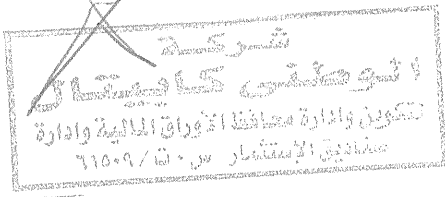 شركة
الوطنى كابيتال
لتكوين وإدارة محافظ الأوراق المالية وإدارة
صناديق الإستثمار س.ت/ ٦١٥٠٩